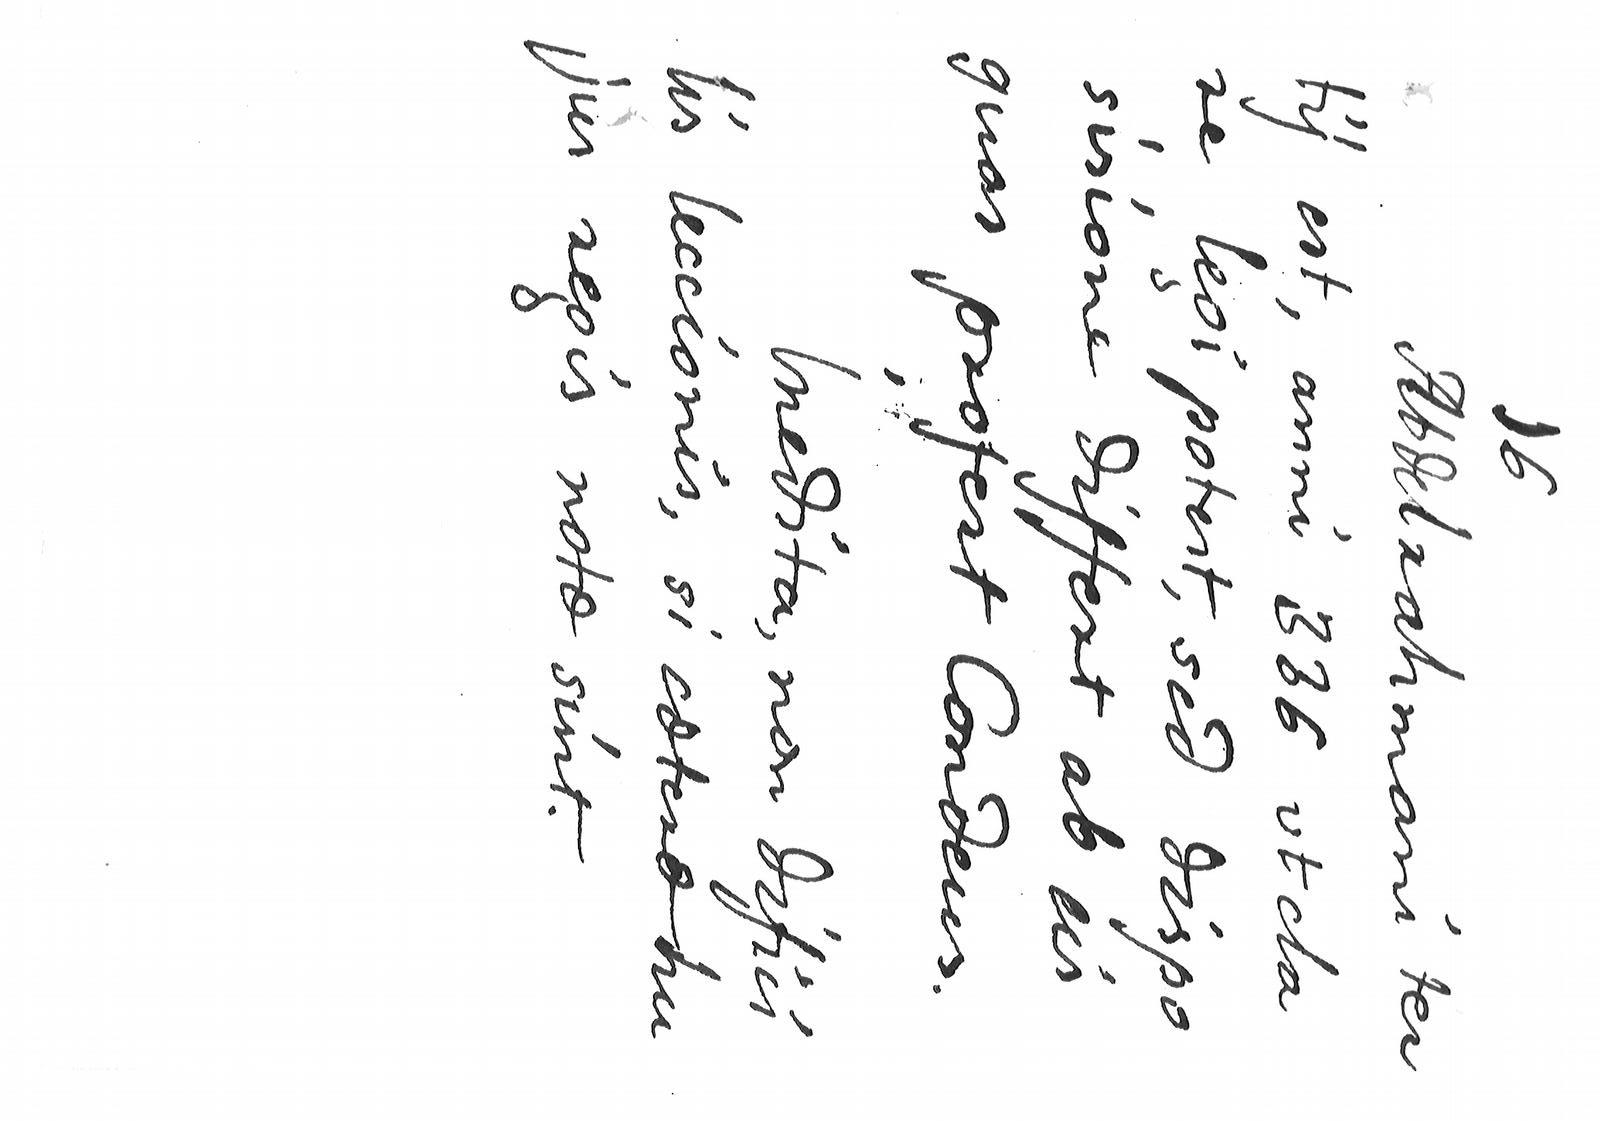 36
Abdelrahmani ter
tij est, anni 336 ut cla
re legi potest, sed dispo
sisione differt ab iis
quas profert Condeus.
Inedita, non dificí
lis leccionis, si cæteræ hu
jus regis notæ sint.